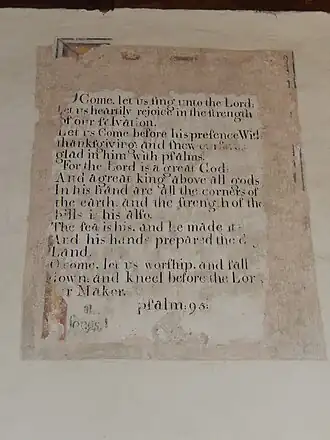 O Come, let us ſing unto the Lord;
Let us heartily rejoice in the ſtrength
of our ſalvation.
Let us Come before his preſence With
thankſgiving; and ſhew
glad in him with pſalms.
For the Lord is a great God:
And a great king above all gods
In his hand are all the corners of
the earth, and the ſtrength of the
hills is his alſo.
The ſea is his, and he made it
And his hands prepared the d
Land.
O come, let us worſhip, and fall
down, and Kneel before the Lor
ur Maker.
pſalm. 95.